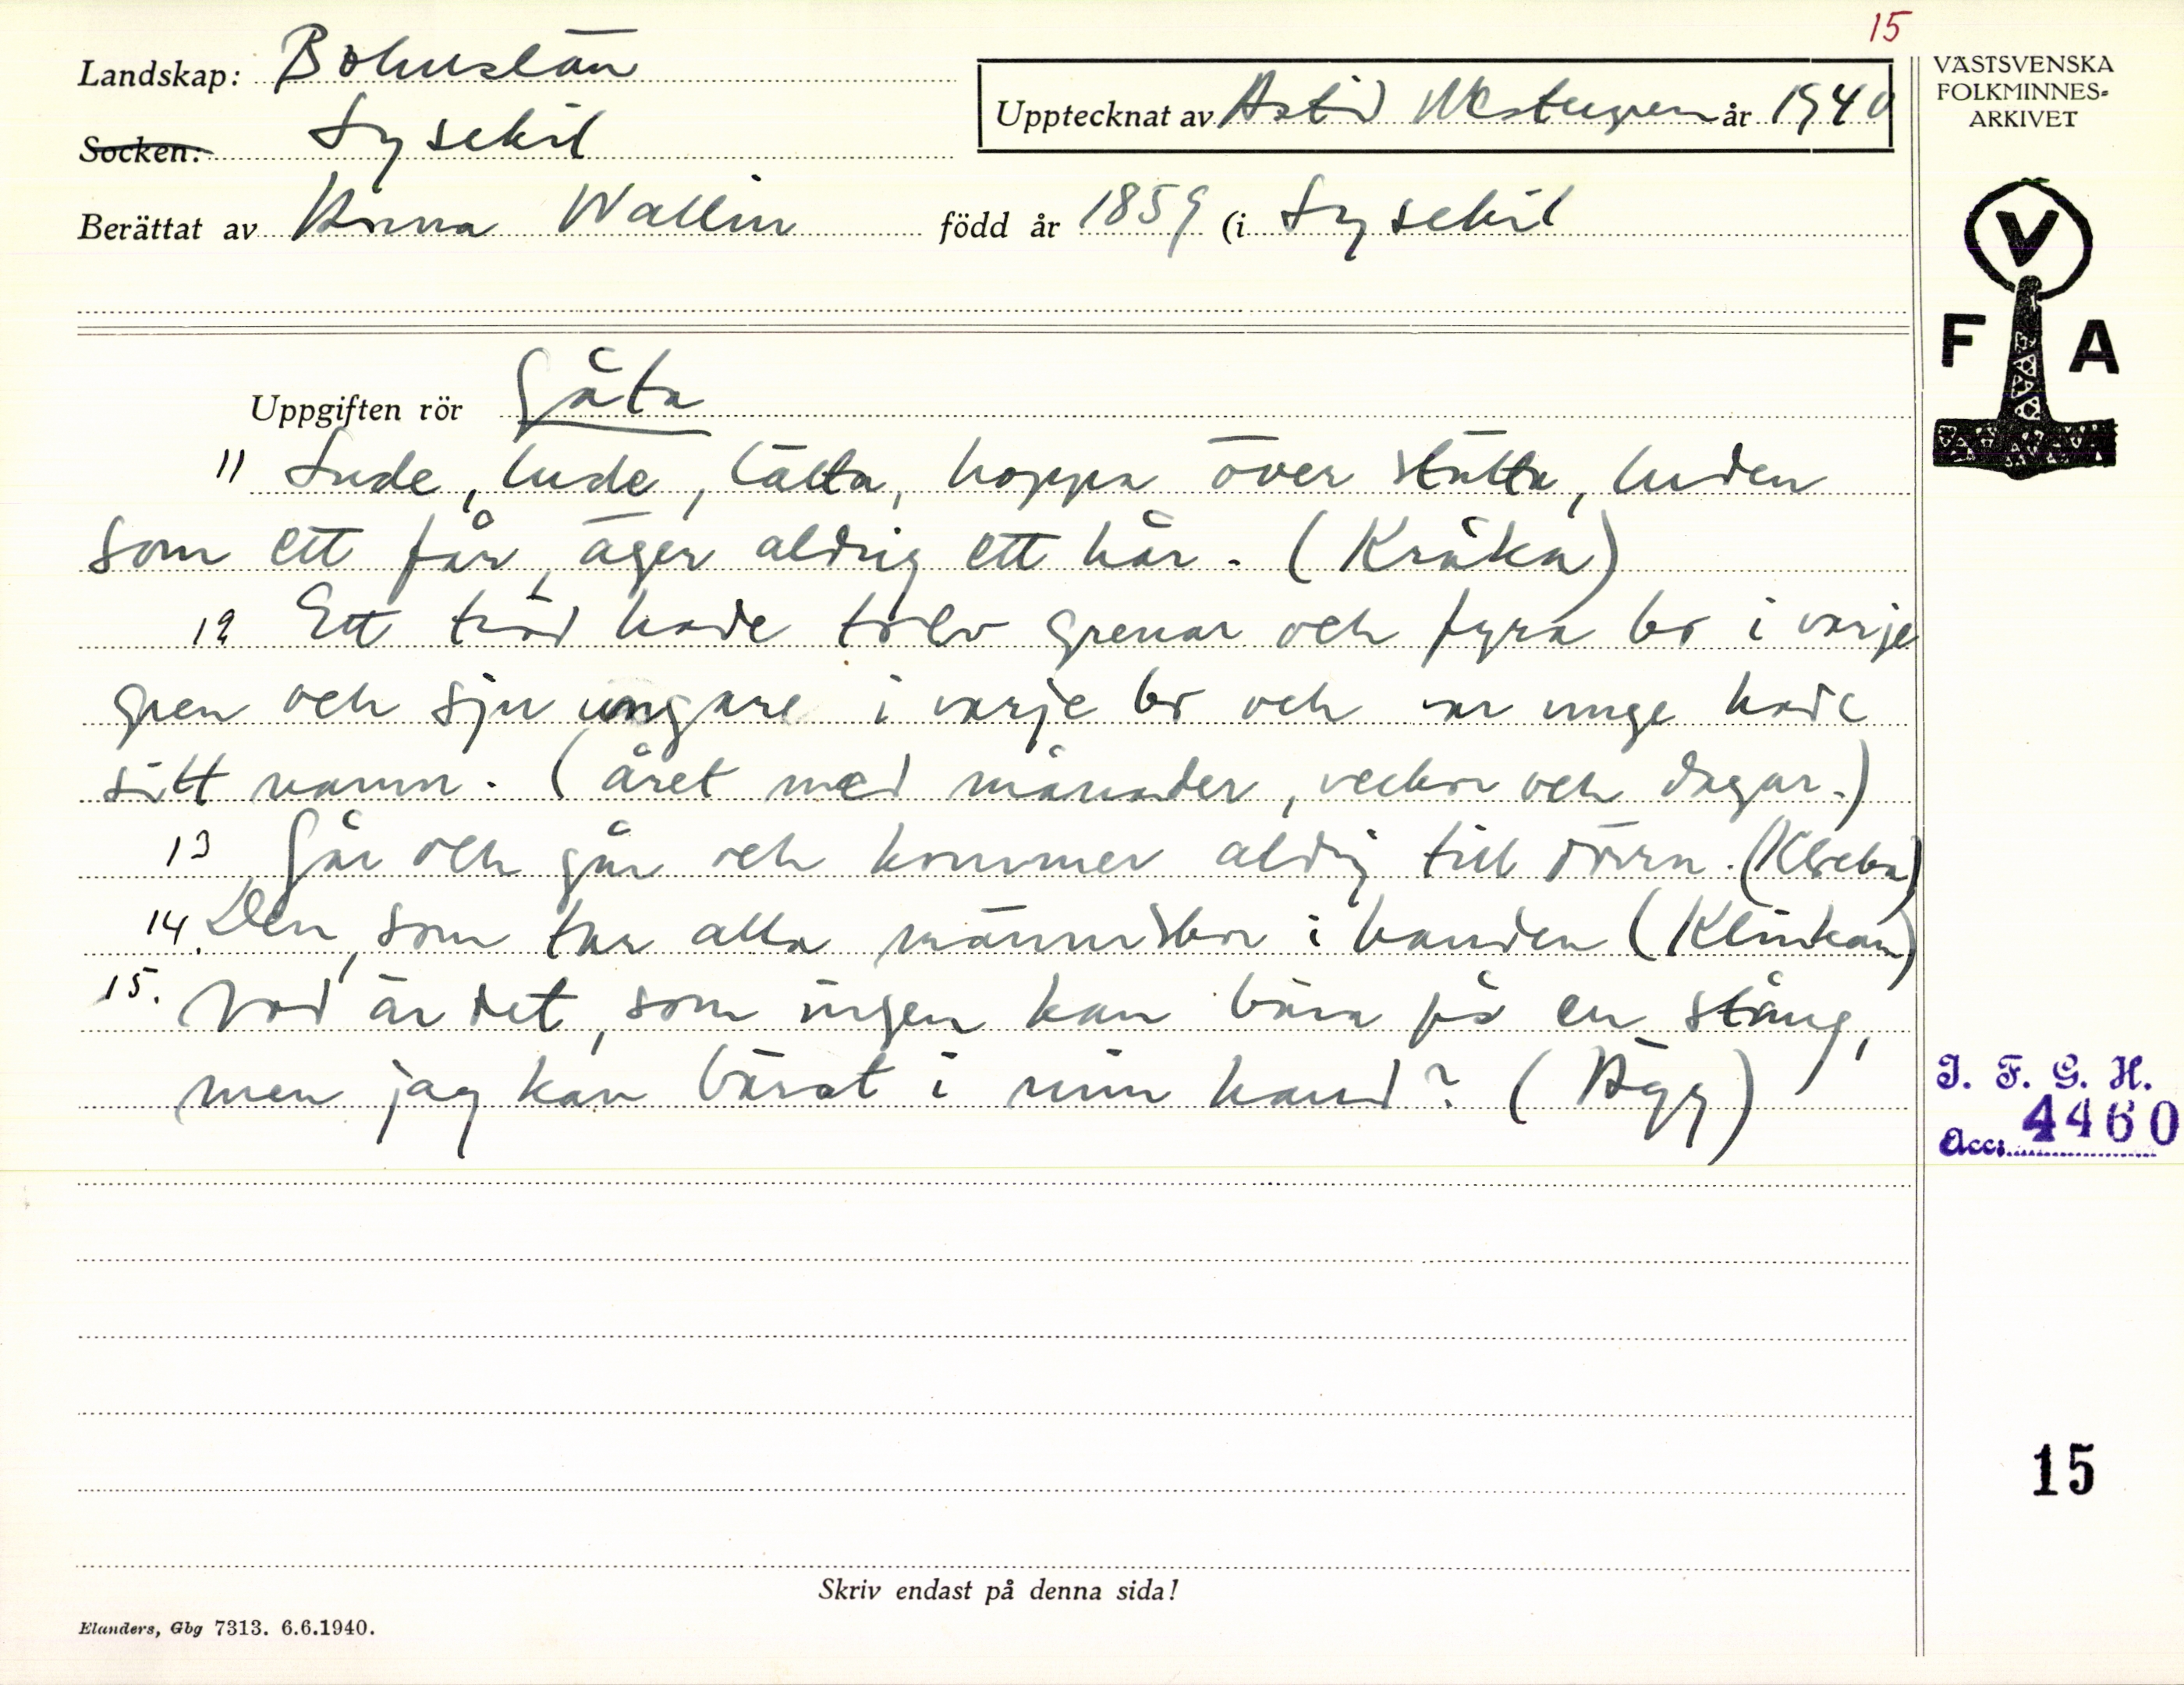 15
Landskap: Bohuslän
Socken: Lysekil
Upptecknat av Astrid Westergren år 1940
Berättat av Anna Wallin född år 1859 (i Lysekil
VÄSTSVENSKA
FOLKMINNES-
ARKIVET
V
F A
Uppgiften rör Gåta
11 Lude, lude, lätta, hoppa över stätta, luden
som ett får, äger aldrig ett hår. (Kråka)
12 Ett träd hade tolv grenar och fyra bo i varje
gren och sju ungare i varje bo och var unge hade
sitt namn. (året med månader, veckor och dagar.)
13 Går och går och kommer aldrig till dörrn. (Klocka)
14. Den, som tar alla människor i handen (Klinkan)
15. Vad är det, som ingen kan bära på en stång,
men jag kan bärat i min hand? (Ägg)
I. F. G. H.
Acc: 4460
15
Skriv endast på denna sida!
Elanders, Gbg 7313. 6.6.1940.